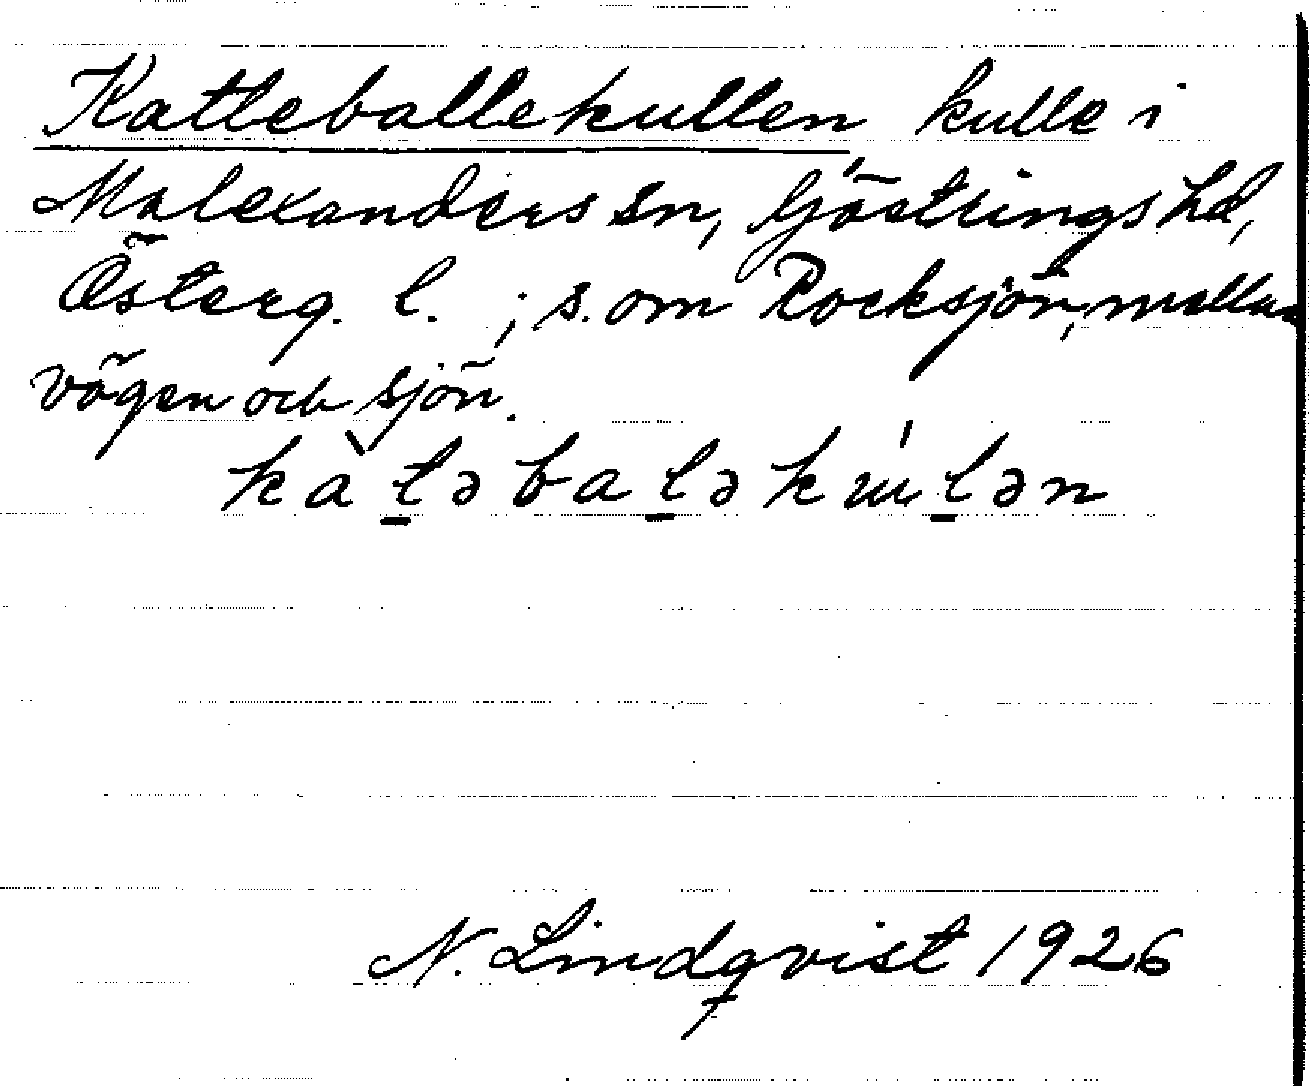 Katteballekullen kulle i
Malexanders sn, Göstrings hd,
Österg. l. ; s. om Rocksjön, mellan
vägen och sjön.
kàtəbaləkúlən
N. Lindqvist 1926